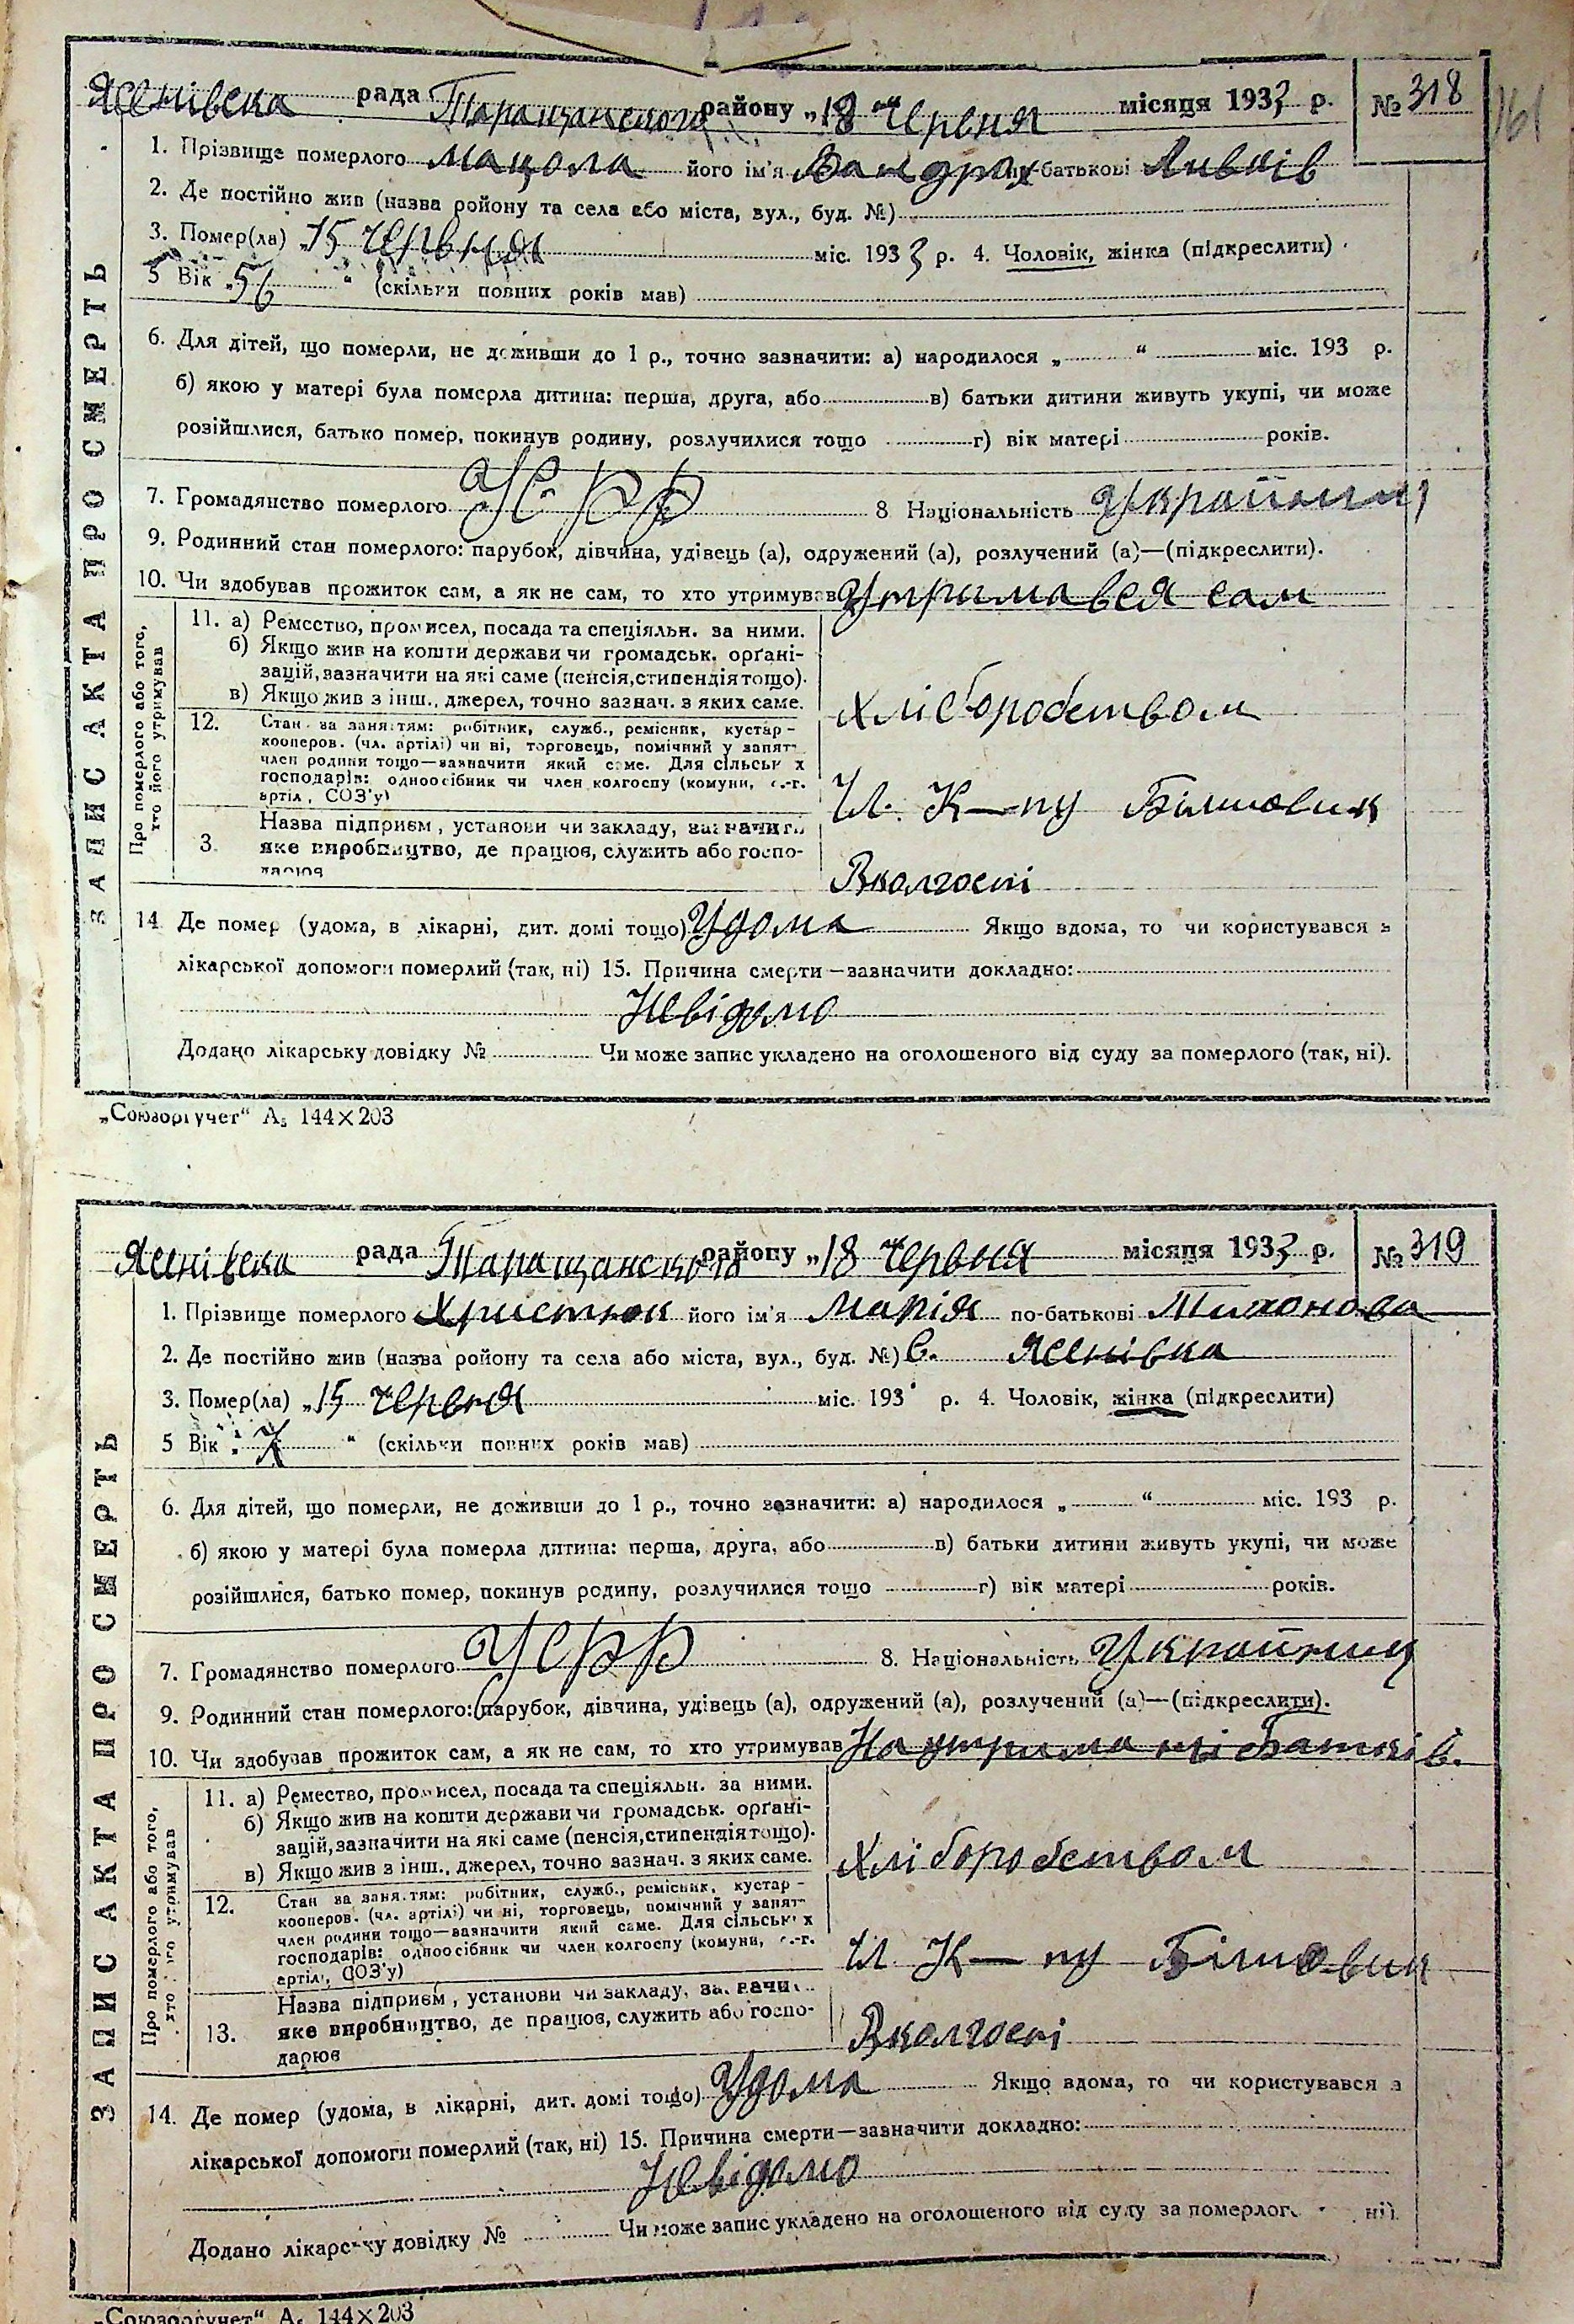 Ясенівска рада Таращанского району „18 Червня місяця 1933 р. № 318
161
1. Прізвище померлого Мацола його ім'я по-батькові
2. Де постійно жив (назва ройону та села або міста, вул., буд. №)
3. Помер(ла) „15 Червня міс. 1933 р. 4. Чоловік, жінка (підкреслити)
5 Вік „56 “ (скільки повних років мав)
6. Для дітей, що померли, не доживши до 1 р., точно зазначити: а) народилося „ “ міс. 193 р.
б) якою у матері була померла дитина: перша, друга, або в) батьки дитини живуть укупі, чи може
розійшлися, батько помер, покинув родину, розлучилися тощо г) вік матері років.
7. Громадянство померлого УСРР 8 Національність Українец
9. Родинний стан померлого: парубок, дівчина, удівець (а), одружений (а), розлучений (а)—(підкреслити).
10. Чи здобував прожиток сам, а як не сам, то хто утримував Утримався сам
ЗАПИС АКТА ПРО СМЕРТЬ
Про померлого або того,
хто його утримував
11. а) Ремество, промисел, посада та спеціяльн. за ними.
б) Якщо жив на кошти держави чи громадськ. орґані-
зацій, зазначити на які саме (пенсія, стипендія тощо).
в) Якщо жив з інш., джерел, точно зазнач. з яких саме.
Хліборобством
12. Стан за заняттям: робітник, служб., ремісник, кустар-
кооперов. (чл. артілі) чи ні, торговець, помічний у занят
член родини тощо—зазначити який саме. Для сільськ х
господарів: одноосібник чи член колгоспу (комуни, с.-г.
артіл, СОЗ'у)
Чл. К—пу Більшовик
3. Назва підприєм, установи чи закладу, зазначити
яке виробництво, де працює, служить або госпо-
дарює
Вколгоспі
14 Де помер (удома, в лікарні, дит. домі тощо) Удома Якщо вдома, то чи користувався з
лікарської допомоги померлий (так, ні) 15. Причина смерти—зазначити докладно:
Невідомо
Додано лікарську довідку № Чи може запис укладено на оголошеного від суду за померлого (так, ні).
„Союзоргучет“ А₅ 144×203
Ясенівска рада Таращанского району „18 Червня місяця 1933 р. № 319
1. Прізвище померлого Христюк його ім'я Марія по-батькові Тихонова
2. Де постійно жив (назва ройону та села або міста, вул., буд. №) С. Ясенівка
3. Помер(ла) „15 Червня міс. 193 р. 4. Чоловік, жінка (підкреслити)
5 Вік „7 “ (скільки повних років мав)
6. Для дітей, що померли, не доживши до 1 р., точно зазначити: а) народилося „ “ міс. 193 р.
б) якою у матері була померла дитина: перша, друга, або в) батьки дитини живуть укупі, чи може
розійшлися, батько помер, покинув родину, розлучилися тощо г) вік матері років.
7. Громадянство померлого УСРР 8. Національність Українец
9. Родинний стан померлого: парубок, дівчина, удівець (а), одружений (а), розлучений (а)—(підкреслити).
10. Чи здобував прожиток сам, а як не сам, то хто утримував На утриманні Батьків.
ЗАПИС АКТА ПРО СМЕРТЬ
Про померлого або того,
хто його утримував
11. а) Ремество, промисел, посада та спеціяльн. за ними.
б) Якщо жив на кошти держави чи громадськ. орґані-
зацій, зазначити на які саме (пенсія, стипендія тощо).
в) Якщо жив з інш., джерел, точно зазнач. з яких саме.
Хліборобством
12. Стан за заняттям: робітник, служб., ремісник, кустар-
кооперов. (чл. артілі) чи ні, торговець, помічний у занят
член родини тощо—зазначити який саме. Для сільськ х
господарів: одноосібник чи член колгоспу (комуни, с.-г.
артіл, СОЗ'у)
Чл. К—пу Більшовик
13. Назва підприєм, установи чи закладу, зазначи
яке виробництво, де працює, служить або госпо-
дарює
Вколгоспі
14. Де помер (удома, в лікарні, дит. домі тощо) Удома Якщо вдома, то чи користувався з
лікарської допомоги померлий (так, ні) 15. Причина смерти—зазначити докладно:
Невідомо
Додано лікарську довідку № Чи може запис укладено на оголошеного від суду за померлого ні).
„Союзоргучет“ А₅ 144×203